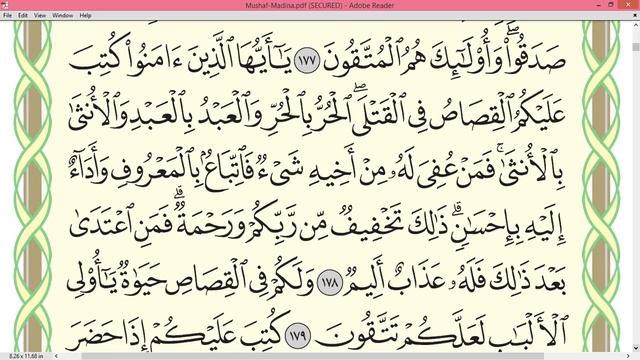 Mushaf-Madina.pdf (SECURED) - Adobe Reader
File Edit View Window Help
صَدَقُوا۟ ۖ وَأُو۟لَٰٓئِكَ هُمُ ٱلْمُتَّقُونَ ١٧٧ يَٰٓأَيُّهَا ٱلَّذِينَ ءَامَنُوا۟ كُتِبَ
عَلَيْكُمُ ٱلْقِصَاصُ فِى ٱلْقَتْلَى ۖ ٱلْحُرُّ بِٱلْحُرِّ وَٱلْعَبْدُ بِٱلْعَبْدِ وَٱلْأُنثَىٰ
بِٱلْأُنثَىٰ ۚ فَمَنْ عُفِىَ لَهُۥ مِنْ أَخِيهِ شَىْءٌ فَٱتِّبَاعٌۢ بِٱلْمَعْرُوفِ وَأَدَآءٌ
إِلَيْهِ بِإِحْسَٰنٍ ۗ ذَٰلِكَ تَخْفِيفٌ مِّن رَّبِّكُمْ وَرَحْمَةٌ ۗ فَمَنِ ٱعْتَدَىٰ
بَعْدَ ذَٰلِكَ فَلَهُۥ عَذَابٌ أَلِيمٌ ١٧٨ وَلَكُمْ فِى ٱلْقِصَاصِ حَيَوٰةٌ يَٰٓأُو۟لِى
ٱلْأَلْبَٰبِ لَعَلَّكُمْ تَتَّقُونَ ١٧٩ كُتِبَ عَلَيْكُمْ إِذَا حَضَرَ
8.26 x 11.68 in